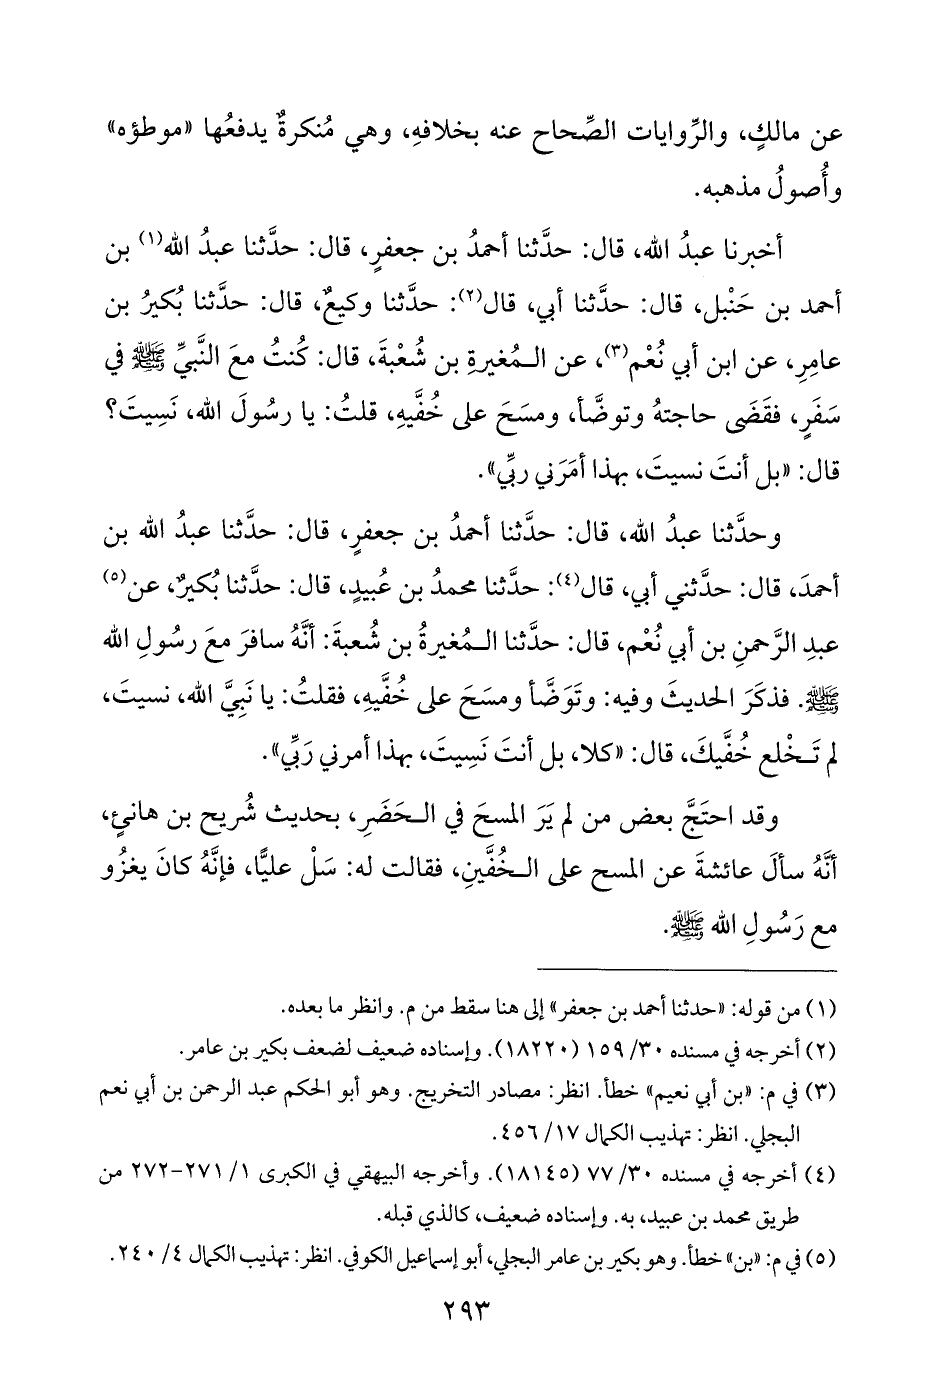 عن مالكٍ، والرِّوايات الصِّحاح عنه بخلافهِ، وهي مُنكرةٌ يدفعُها «موطؤه»
وأُصولُ مذهبه.
أخبرنا عبدُ الله، قال: حدَّثنا أحمدُ بن جعفرٍ، قال: حدَّثنا عبدُ الله(١) بن
أحمد بن حَنْبل، قال: حدَّثنا أبي، قال(٢): حدَّثنا وكيعٌ، قال: حدَّثنا بُكيرُ بن
عامرِ، عن ابن أبي نُعْم(٣)، عن المُغيرةِ بن شُعْبةَ، قال: كُنتُ معَ النَّبيِّ ﷺ في
سَفَرٍ، فقَضَى حاجتهُ وتوضَّأ، ومسَحَ على خُفَّيهِ، قلتُ: يا رسُولَ الله، نَسِيتَ؟
قال: «بل أنتَ نسيتَ، بهذا أمَرَني ربِّي».
وحدَّثنا عبدُ الله، قال: حدَّثنا أحمدُ بن جعفرٍ، قال: حدَّثنا عبدُ الله بن
أحمدَ، قال: حدَّثني أبي، قال(٤): حدَّثنا محمدُ بن عُبيدٍ، قال: حدَّثنا بُكيرٌ، عن(٥)
عبدِ الرَّحمنِ بن أبي نُعْم، قال: حدَّثنا المُغيرةُ بن شُعبةَ: أنَّهُ سافرَ معَ رسُولِ الله
ﷺ. فذكَرَ الحديثَ وفيه: وتَوَضَّأ ومسَحَ على خُفَّيهِ، فقلتُ: يا نَبِيَّ الله، نسيتَ،
لم تَخْلع خُفَّيكَ، قال: «كلا، بل أنتَ نَسِيتَ، بهذا أمرني رَبِّي».
وقد احتَجَّ بعض من لم يَرَ المسحَ في الحَضَرِ، بحديث شُريح بن هانئٍ،
أنَّهُ سألَ عائشةَ عن المسح على الخُفَّينِ، فقالت له: سَلْ عليًّا، فإنَّهُ كانَ يغزُو
مع رَسُولِ الله ﷺ.
(١) من قوله: «حدثنا أحمد بن جعفر» إلى هنا سقط من م. وانظر ما بعده.
(٢) أخرجه في مسنده ٣٠/ ١٥٩ (١٨٢٢٠). وإسناده ضعيف لضعف بكير بن عامر.
(٣) في م: «بن أبي نعيم» خطأ. انظر: مصادر التخريج. وهو أبو الحكم عبد الرحمن بن أبي نعم
البجلي. انظر: تهذيب الكمال ١٧/ ٤٥٦.
(٤) أخرجه في مسنده ٣٠/ ٧٧ (١٨١٤٥). وأخرجه البيهقي في الكبرى ١/ ٢٧١-٢٧٢ من
طريق محمد بن عبيد، به. وإسناده ضعيف، كالذي قبله.
(٥) في م: «بن» خطأ. وهو بكير بن عامر البجلي، أبو إسماعيل الكوفي. انظر: تهذيب الكمال ٤/ ٢٤٠.
٢٩٣